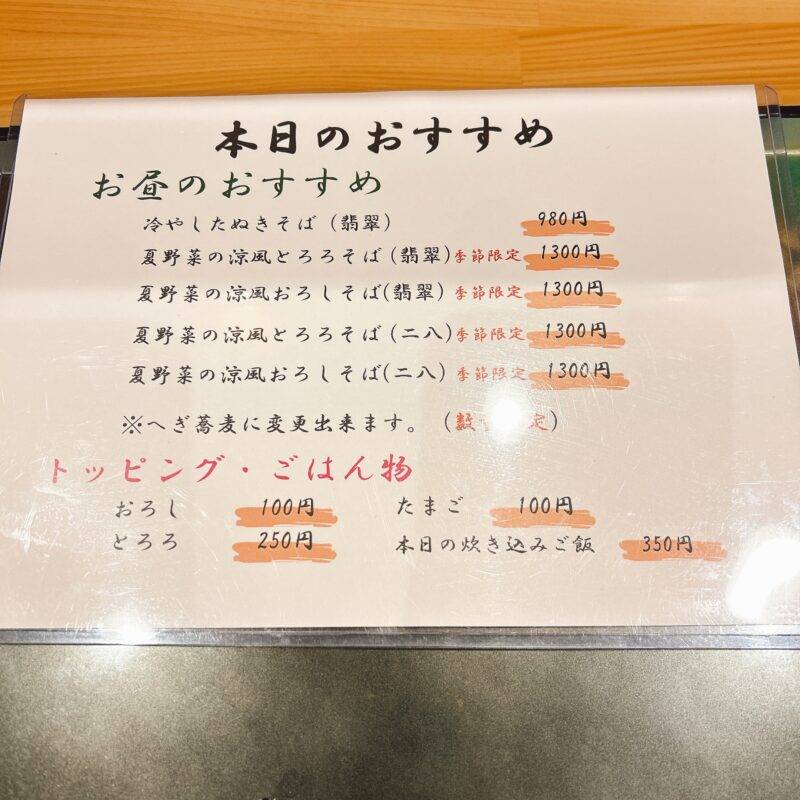 本日のおすすめ
お昼のおすすめ
冷やしたぬきそば（翡翠） 980円
夏野菜の涼風とろろそば(翡翠)季節限定 1300円
夏野菜の涼風おろしそば(翡翠) 季節限定 1300円
夏野菜の涼風とろろそば(二八)季節限定 1300円
夏野菜の涼風おろしそば(二八) 季節限定 1300円
※へぎ蕎麦に変更出来ます。（数 定）
トッピング・ごはん物
おろし 100円 たまご 100円
とろろ 250円 本日の炊き込みご飯 350円